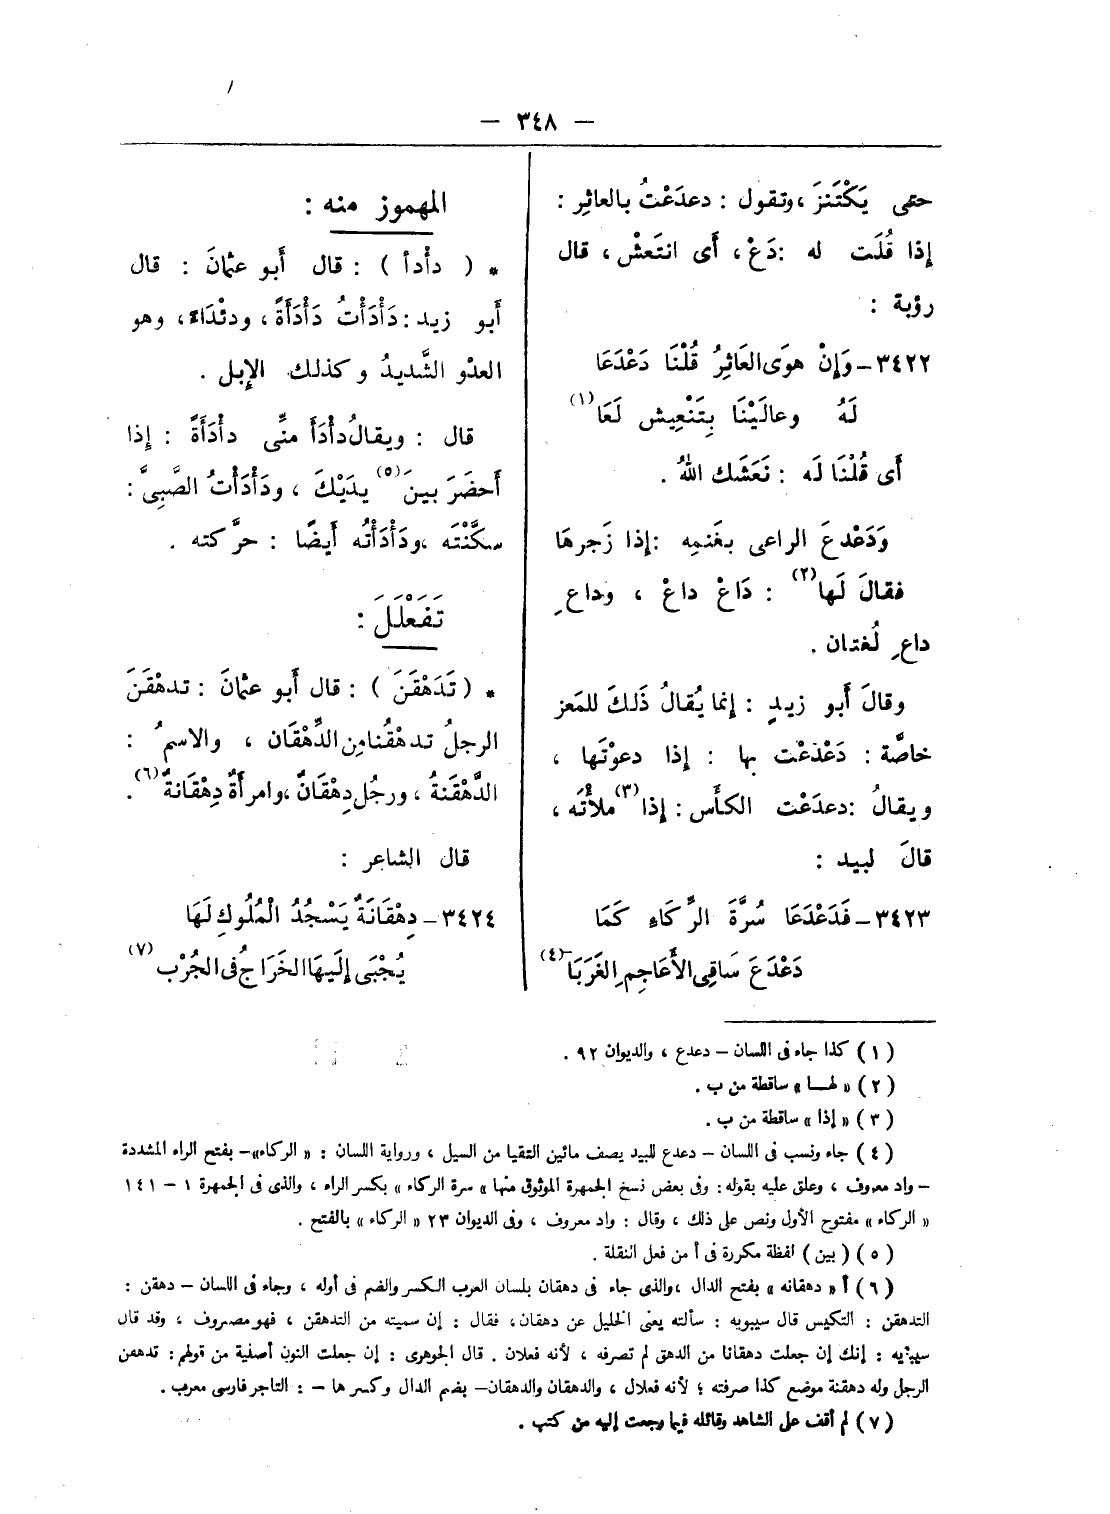 — ٣٤٨ —
حتى يَكْتَنزَ ، وتقول : دعدَعْتُ بالعاثِر :
إذا قُلتَ له : دَعْ ، أَى انتَعشْ ، قال
رؤبة :
٣٤٢٢ – وَإنْ هوَى العَاثِرُ قُلْنَا دَعْدَعَا
لَهُ وعالَيْنَا بِتَنْعِيش لَعَا (١)
أَى قُلْنَا لَه : نَعَشَك اللهُ .
وَدَعْدعَ الراعى بغَنمِه : إذا زَجرهَا
فقالَ لَها (٢) : دَاعْ داعْ ، وداعِ
داعِ لُغتان .
وقالَ أَبو زيدٍ : إنما يُقالُ ذَلكَ للمَعز
خاصَّة : دَعْدَعْت بها : إذا دعوْتَها ،
ويقالُ : دعدَعْت الكأَس : إذا (٣) ملأْتَه ،
قالَ لبيد :
٣٤٢٣ – فَدَعْدَعَا سُرَّةَ الرِّكَاءِ كَمَا
دَعْدَعَ سَاقِى الأَعَاجِمِ الغَرَبَا (٤)
المهموز منه :
* ( دأْدأ ) : قال أَبو عثمانَ : قال
أَبو زيد : دَأْدَأْتُ دَأْدَأَةً ، ودئْدَاءً ، وهو
العدْو الشَّديدُ وكذلك الإِبل .
قال : ويقالُ دأْدَأَ منِّى دأْدَأَةً : إذا
أَحضَرَ بينَ (٥) يدَيْكَ ، ودَأْدَأْتُ الصَّبِىَّ :
سكَّنْتَه ، ودَأْدَأْتُه أَيضًا : حرَّكته .
تَفَعْلَلَ :
* ( تَدَهْقَنَ ) : قال أَبو عثمانَ : تدهْقنَ
الرجلُ تدهْقُنا مِن الدِّهْقَان ، والاسمُ :
الدَّهْقَنةُ ، ورجُل دِهْقَانٌ ، وامرأَةٌ دِهْقَانةٌ (٦) .
قال الشاعر :
٣٤٢٤ – دِهْقَانَةٌ يَسْجُدُ الْمُلُوكِ لَهَا
يُجْبَى إِلَيهَا الخَرَاجُ فى الجُرْب (٧)
( ١ ) كذا جاء فى اللسان – دعدع ، والديوان ٩٢ .
( ٢ ) « لهـا » ساقطة من ب .
( ٣ ) « إذا » ساقطة من ب .
( ٤ ) جاء ونسب فى اللسان – دعدع للبيد يصف مائين التقيا من السيل ، ورواية اللسان : « الركاء» – بفتح الراء المشددة
– واد معروف ، وعلق عليه بقوله : وفى بعض نسخ الجمهرة الموثوق منها » سرة الركاء » بكسر الراء ، والذى فى الجمهرة ١ – ١٤١
« الركاء » مفتوح الأول ونص على ذلك ، وقال : واد معروف ، وفى الديوان ٢٣ « الركاء » بالفتح .
( ٥ ) ( بين ) لفظة مكررة فى أ من فعل النقلة .
( ٦ ) أ « دهقانه » بفتح الدال ، والذى جاء فى دهقان بلسان العرب الكسر والضم فى أوله ، وجاء فى اللسان – دهقن :
التدهقن : التكيس قال سيبويه : سألته يعنى الخليل عن دهقان ، فقال : إن سميته من التدهقن ، فهو مصروف ، وقد قال
سيبويه : إنك إن جعلت دهقانا من الدهق لم تصرفه ، لأنه فعلان . قال الجوهرى : إن جعلت النون أصلية من قولهم : تدهقن
الرجل وله دهقنة موضع كذا صرفته ؛ لأنه فعلال ، والدهقان والدهقان – بضم الدال وكسر ها – : التاجر فارسى معرب .
( ٧ ) لم أقف على الشاهد وقائله فيما رجعت إليه من كتب .